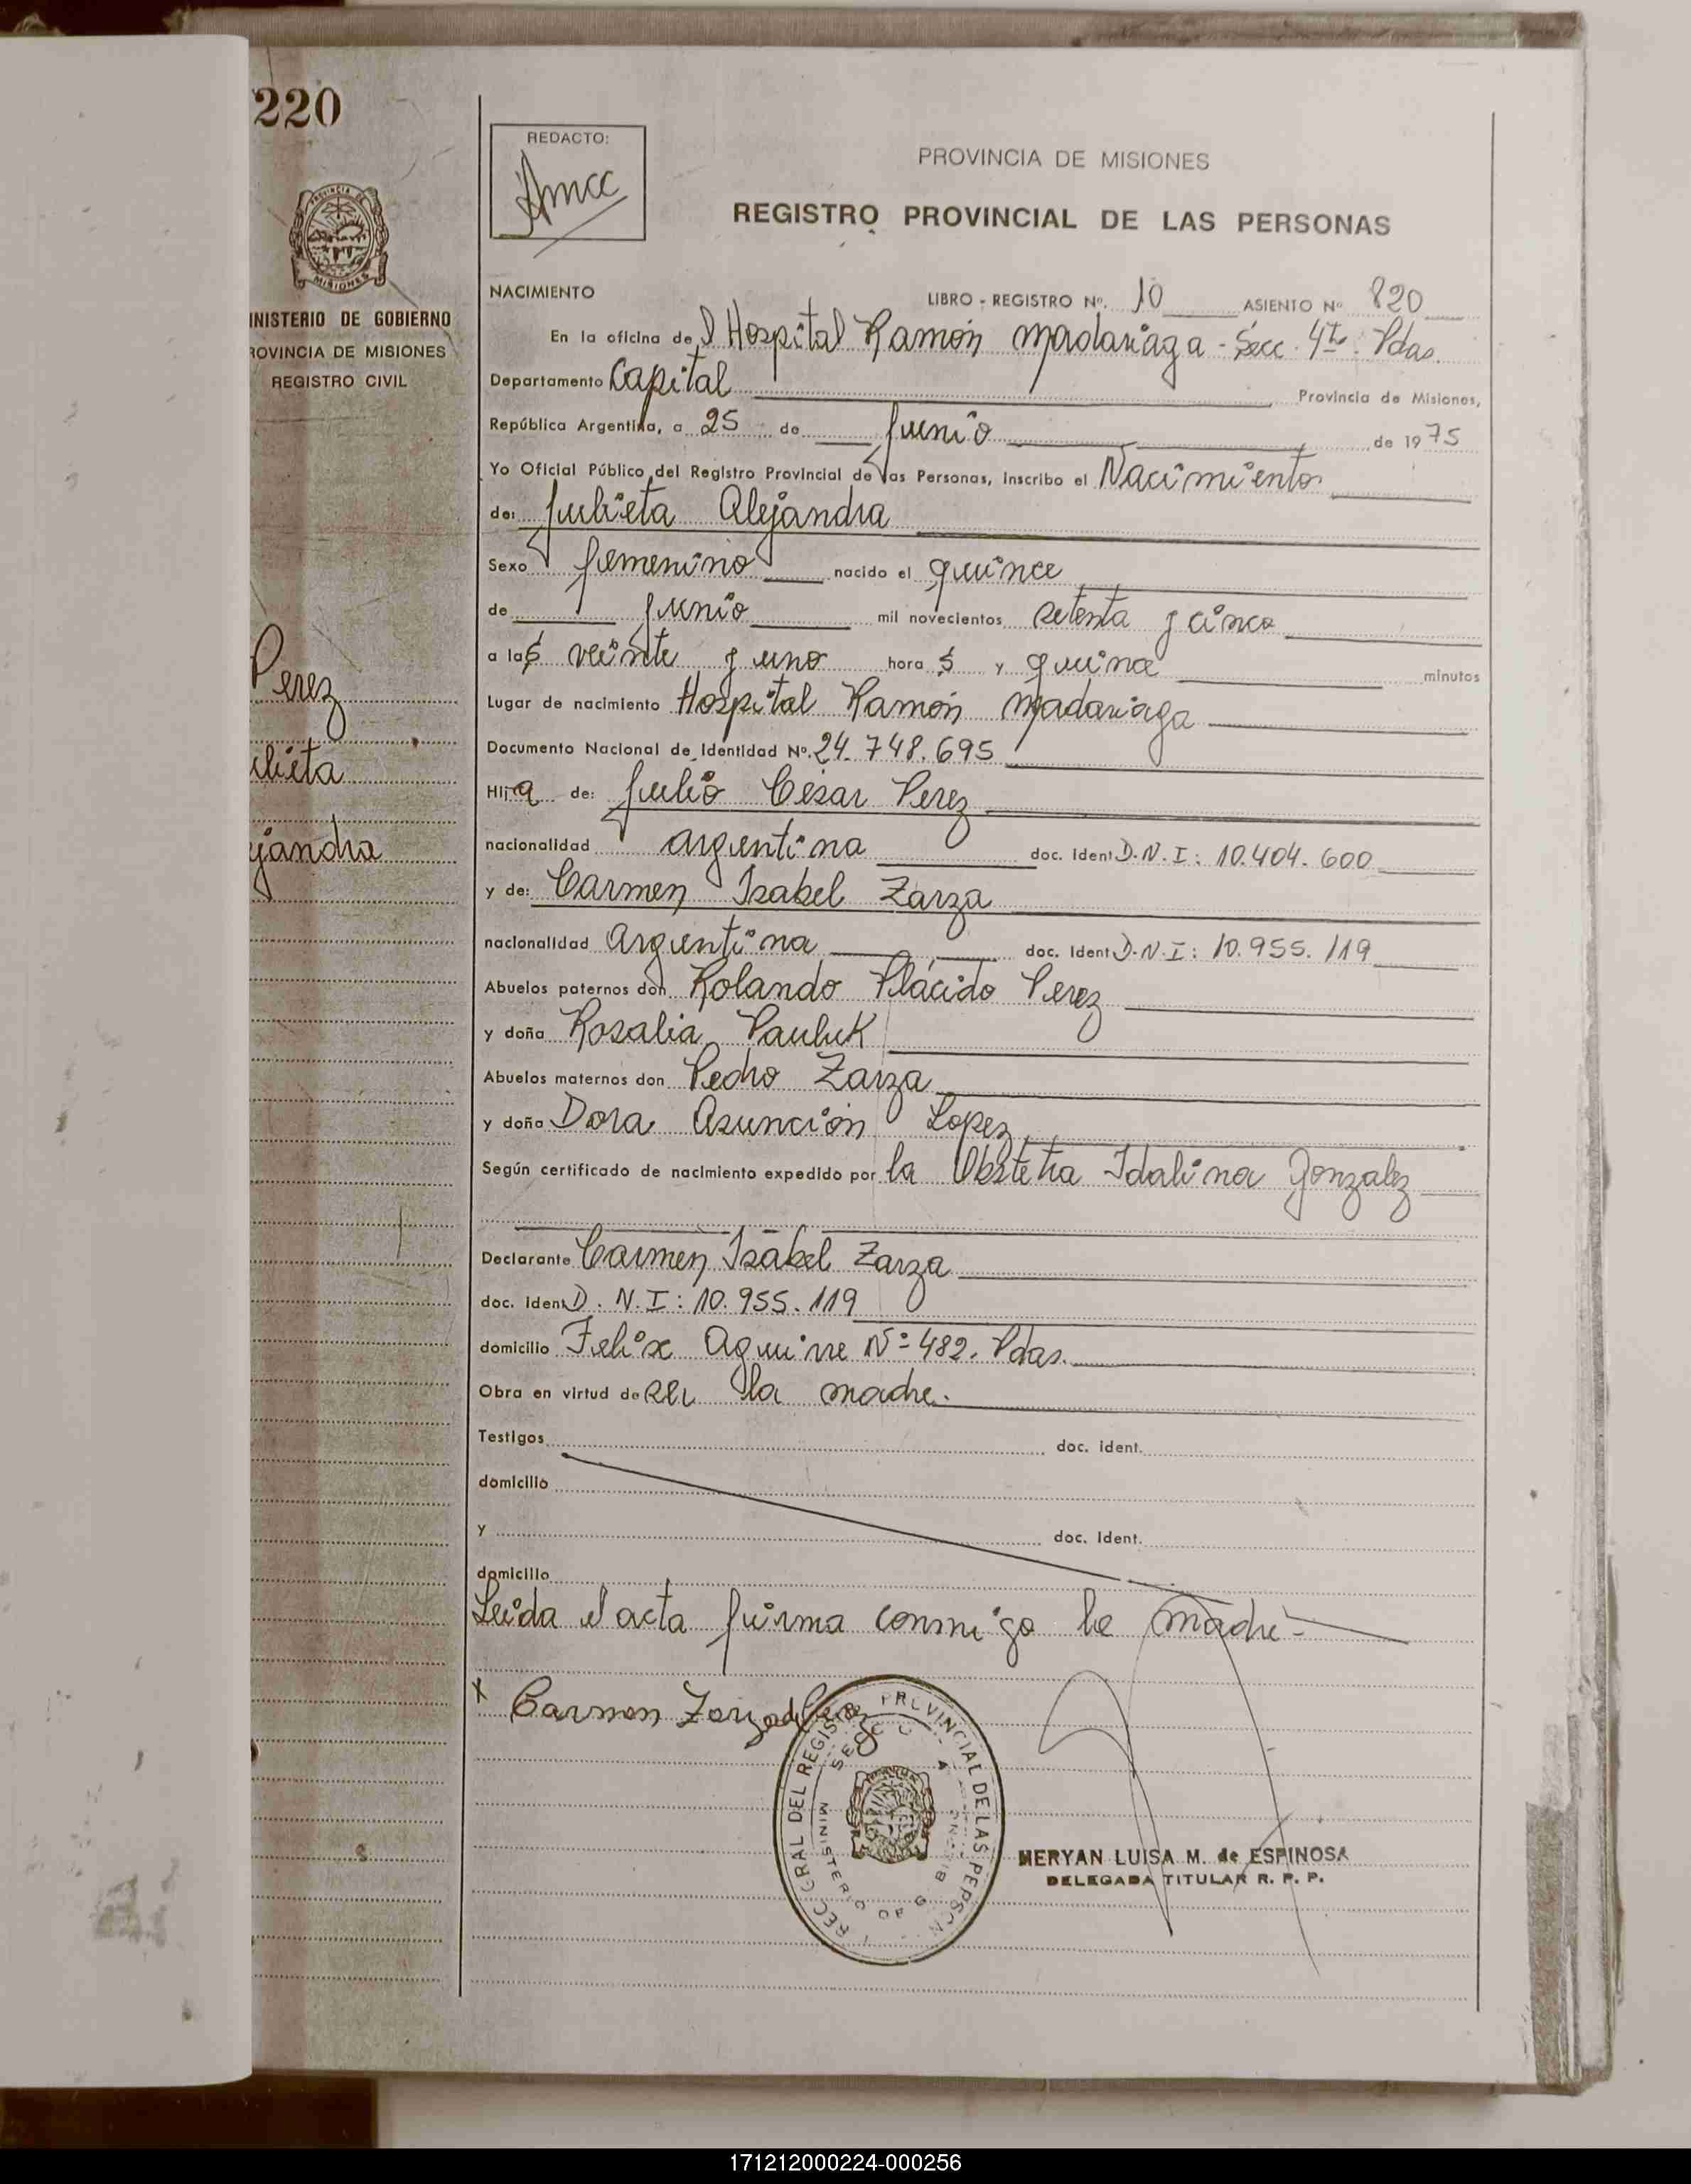 220
REDACTO:
PROVINCIA DE MISIONES
REGISTRO PROVINCIAL DE LAS PERSONAS
PROVINCIA DE
MISIONES
INISTERIO DE GOBIERNO
ROVINCIA DE MISIONES
REGISTRO CIVIL
NACIMIENTO LIBRO - REGISTRO Nº. 10 ASIENTO Nº 820
En la oficina del Hospital Ramón Madariaga - Secc. 4ta. Pdas.
Departamento Capital Provincia de Misiones,
República Argentina, a 25 de Junio de 1975
Yo Oficial Público del Registro Provincial de las Personas, inscribo el Nacimiento
de: Julieta Alejandra
Sexo femenino nacido el quince
de junio mil novecientos setenta y cinco
a las veinte y uno hora s y quince minutos
Lugar de nacimiento Hospital Ramón Madariaga
Documento Nacional de Identidad Nº. 24.748.695
Hija de: Julio César Perez
nacionalidad argentina doc. Ident D.N.I: 10.404.600
y de: Carmen Isabel Zarza
nacionalidad Argentina doc. Ident D.N.I: 10.955.119
Abuelos paternos don Rolando Plácido Perez
y doña Rosalia Pauluk
Abuelos maternos don Pedro Zarza
y doña Dora Asunción Lopez
Según certificado de nacimiento expedido por la Obstetra Idalina Gonzalez
Declarante Carmen Isabel Zarza
doc. Ident D.N.I: 10.955.119
domicilio Felix Aguirre Nº 482. Pdas.
Obra en virtud de ser la madre.
Testigos doc. ident.
domicilio
y doc. Ident.
domicilio
Leida el acta firma conmigo la madre.-
x Carmen Zarza de Perez
Perez
ulieta
ejandra
REGISTRO PROVINCIAL DE LAS PERSON
MINISTERIO DE
MERYAN LUISA M. de ESPINOSA
DELEGADA TITULAR R. P. P.
171212000224-000256